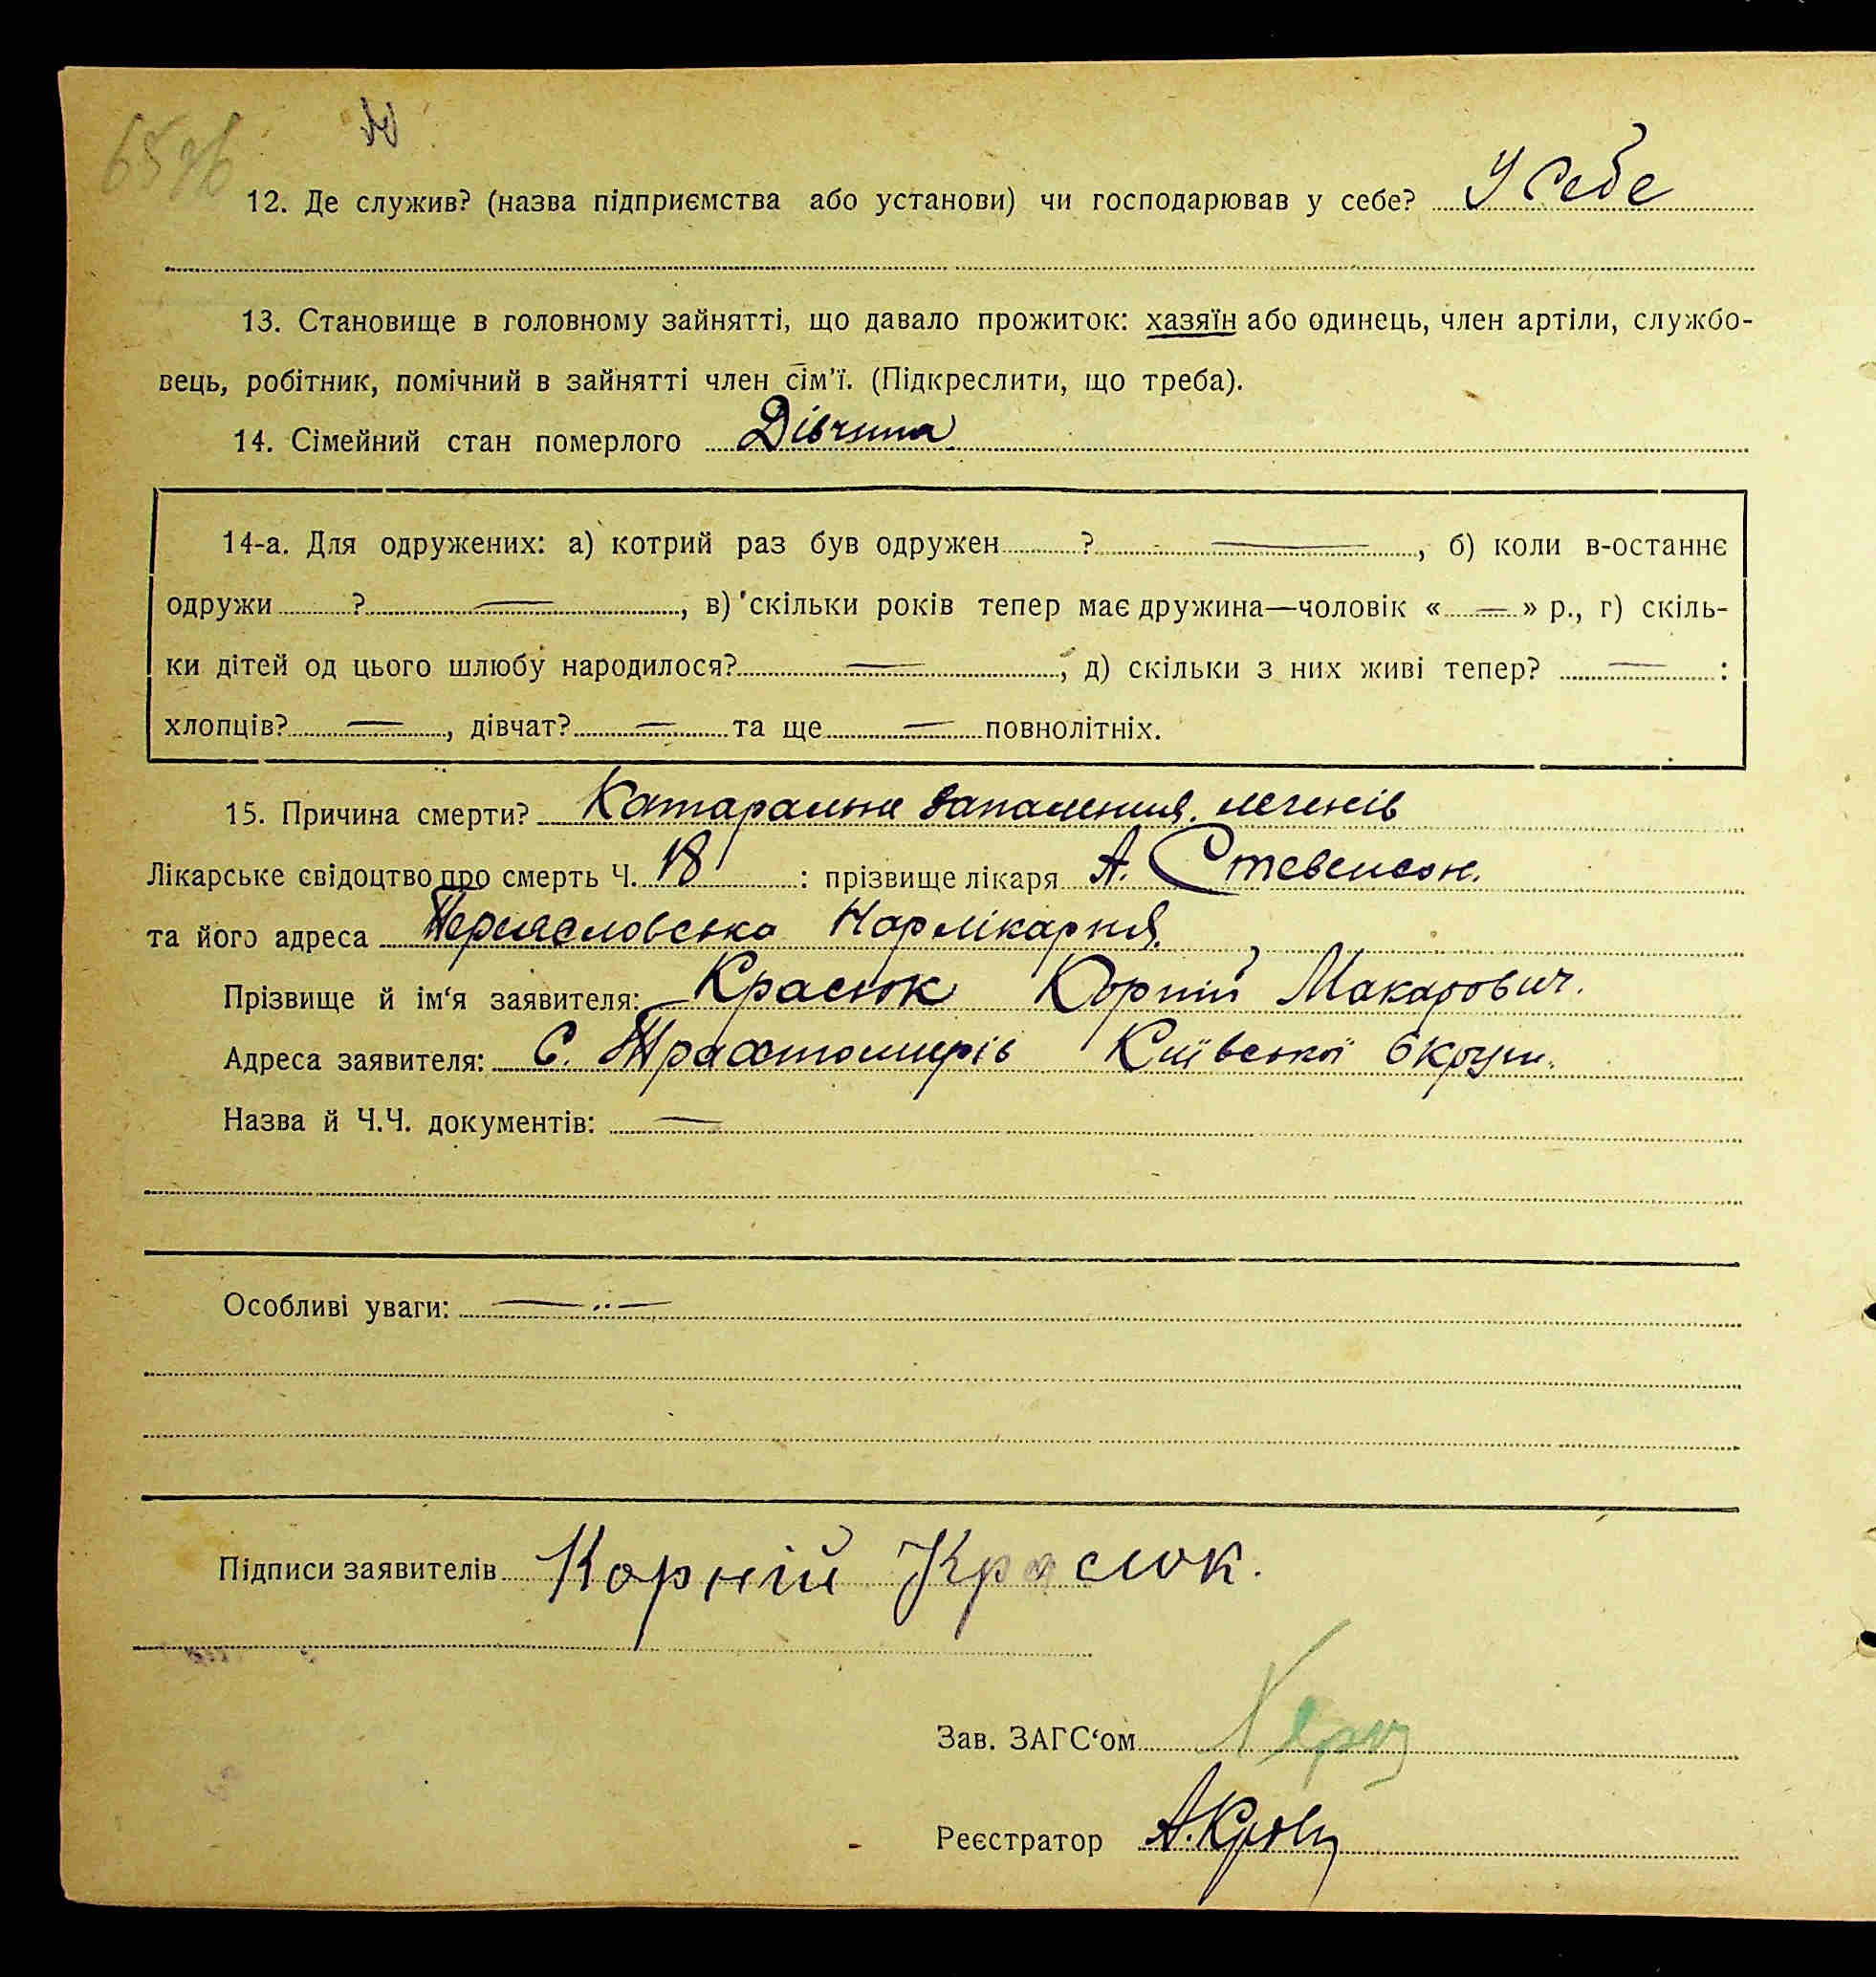 12. Де служив? (назва підприємства або установи) чи господарював у себе? У себе
13. Становище в головному зайнятті, що давало прожиток: хазяїн або одинець, член артіли, службо-
вець, робітник, помічний в зайнятті член сім'ї. (Підкреслити, що треба).
14. Сімейний стан померлого Дівчина
14-а. Для одружених: а) котрий раз був одружен ? —, б) коли в-останнє
одружи ? —, в) скільки років тепер має дружина—чоловік « — » р., г) скіль-
ки дітей од цього шлюбу народилося? —, д) скільки з них живі тепер? — :
хлопців? —, дівчат? — та ще — повнолітніх.
15. Причина смерти? Катаральне запалення легенів
Лікарське свідоцтво про смерть Ч. 18 : прізвище лікаря А. Стевенсон.
та його адреса Переяславська Нарлікарня.
Прізвище й ім'я заявителя: Красюк Корній Макарович.
Адреса заявителя: С. Трахтомирів Київської Округи.
Назва й Ч.Ч. документів: —
Особливі уваги: — .. —
Підписи заявителів Корній Красюк.
Зав. ЗАГС'ом
Реєстратор